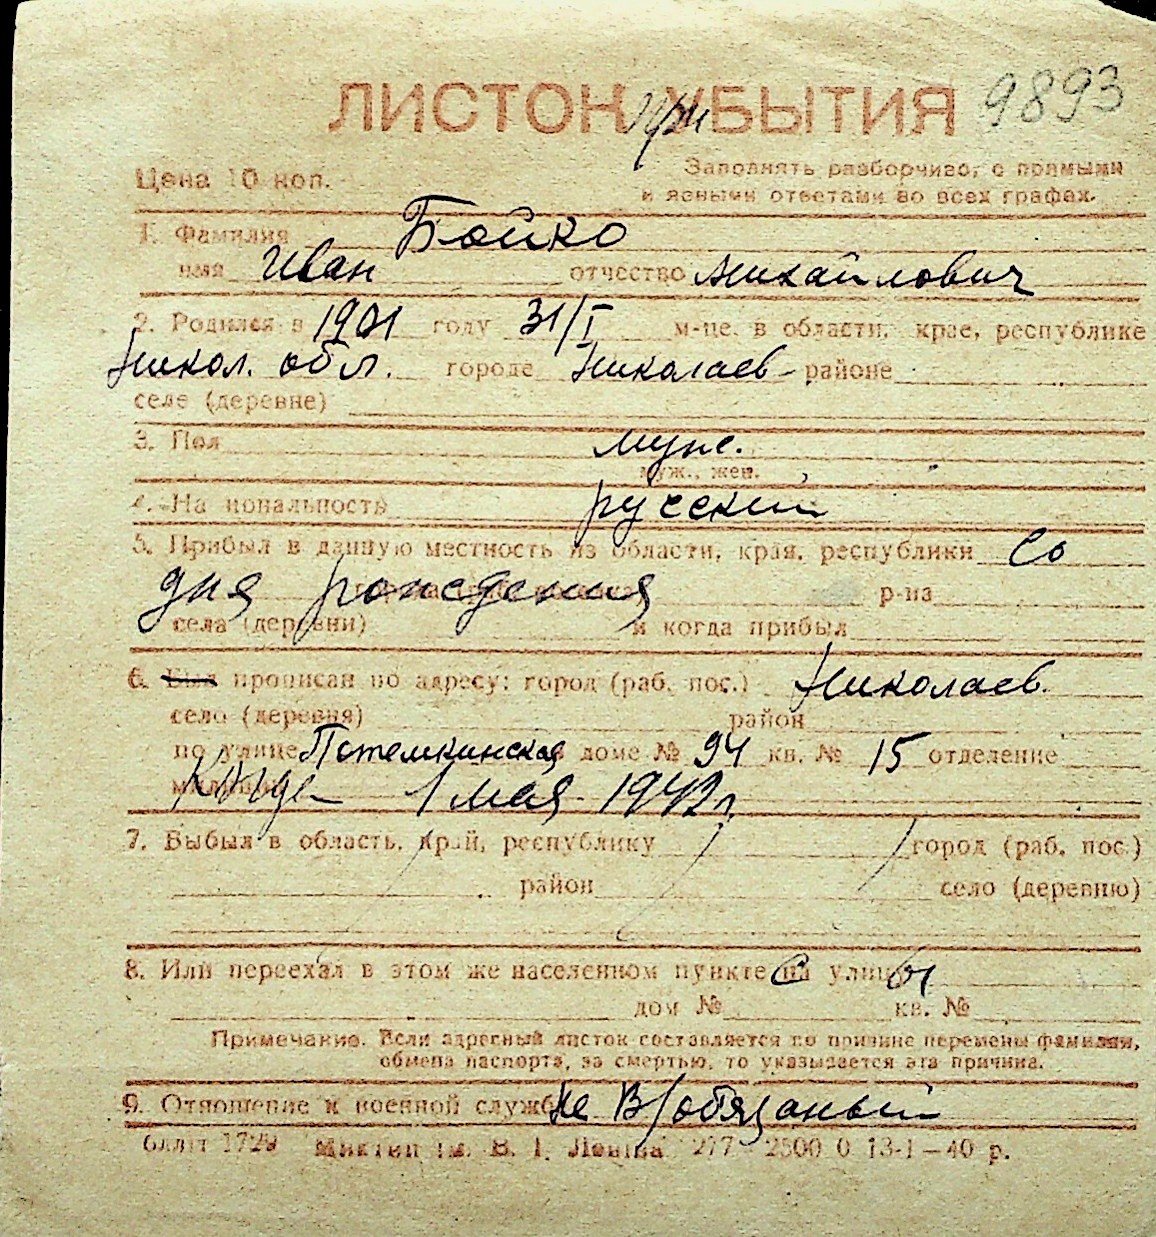 ЛИСТОК УБЫТИЯ при 9893
Цена 10 коп.
Заполнять разборчиво, с прямыми
и ясными ответами во всех графах.
1. Фамилия Бойко
имя Иван отчество Михайлович
2. Родился в 1901 году 31/I м-це, в области, крае, республике
Никол. обл. городе Николаев районе
селе (деревне)
3. Пол муж.
муж., жен.
4. Национальность русский
5. Прибыл в данную местность из области, края, республики со
дня рождения р-на
села (деревни) и когда прибыл
6. Был прописан по адресу: город (раб. пос.) Николаев
село (деревня) район
по улице Потемкинская доме № 94 кв. № 15 отделение
1 мая 1942 г.
7. Выбыл в область, край, республику город (раб. пос.)
район село (деревню)
8. Или переехал в этом же населенном пункте с на улицы
дом № кв. №
Примечание. Если адресный листок составляется по причине перемены фамилии,
обмена паспорта, за смертью, то указывается эта причина.
9. Отношение к военной службе Не в/обязаный
1729 ім. В. І. Леніна 277 - 2500 0 13-1-40 р.